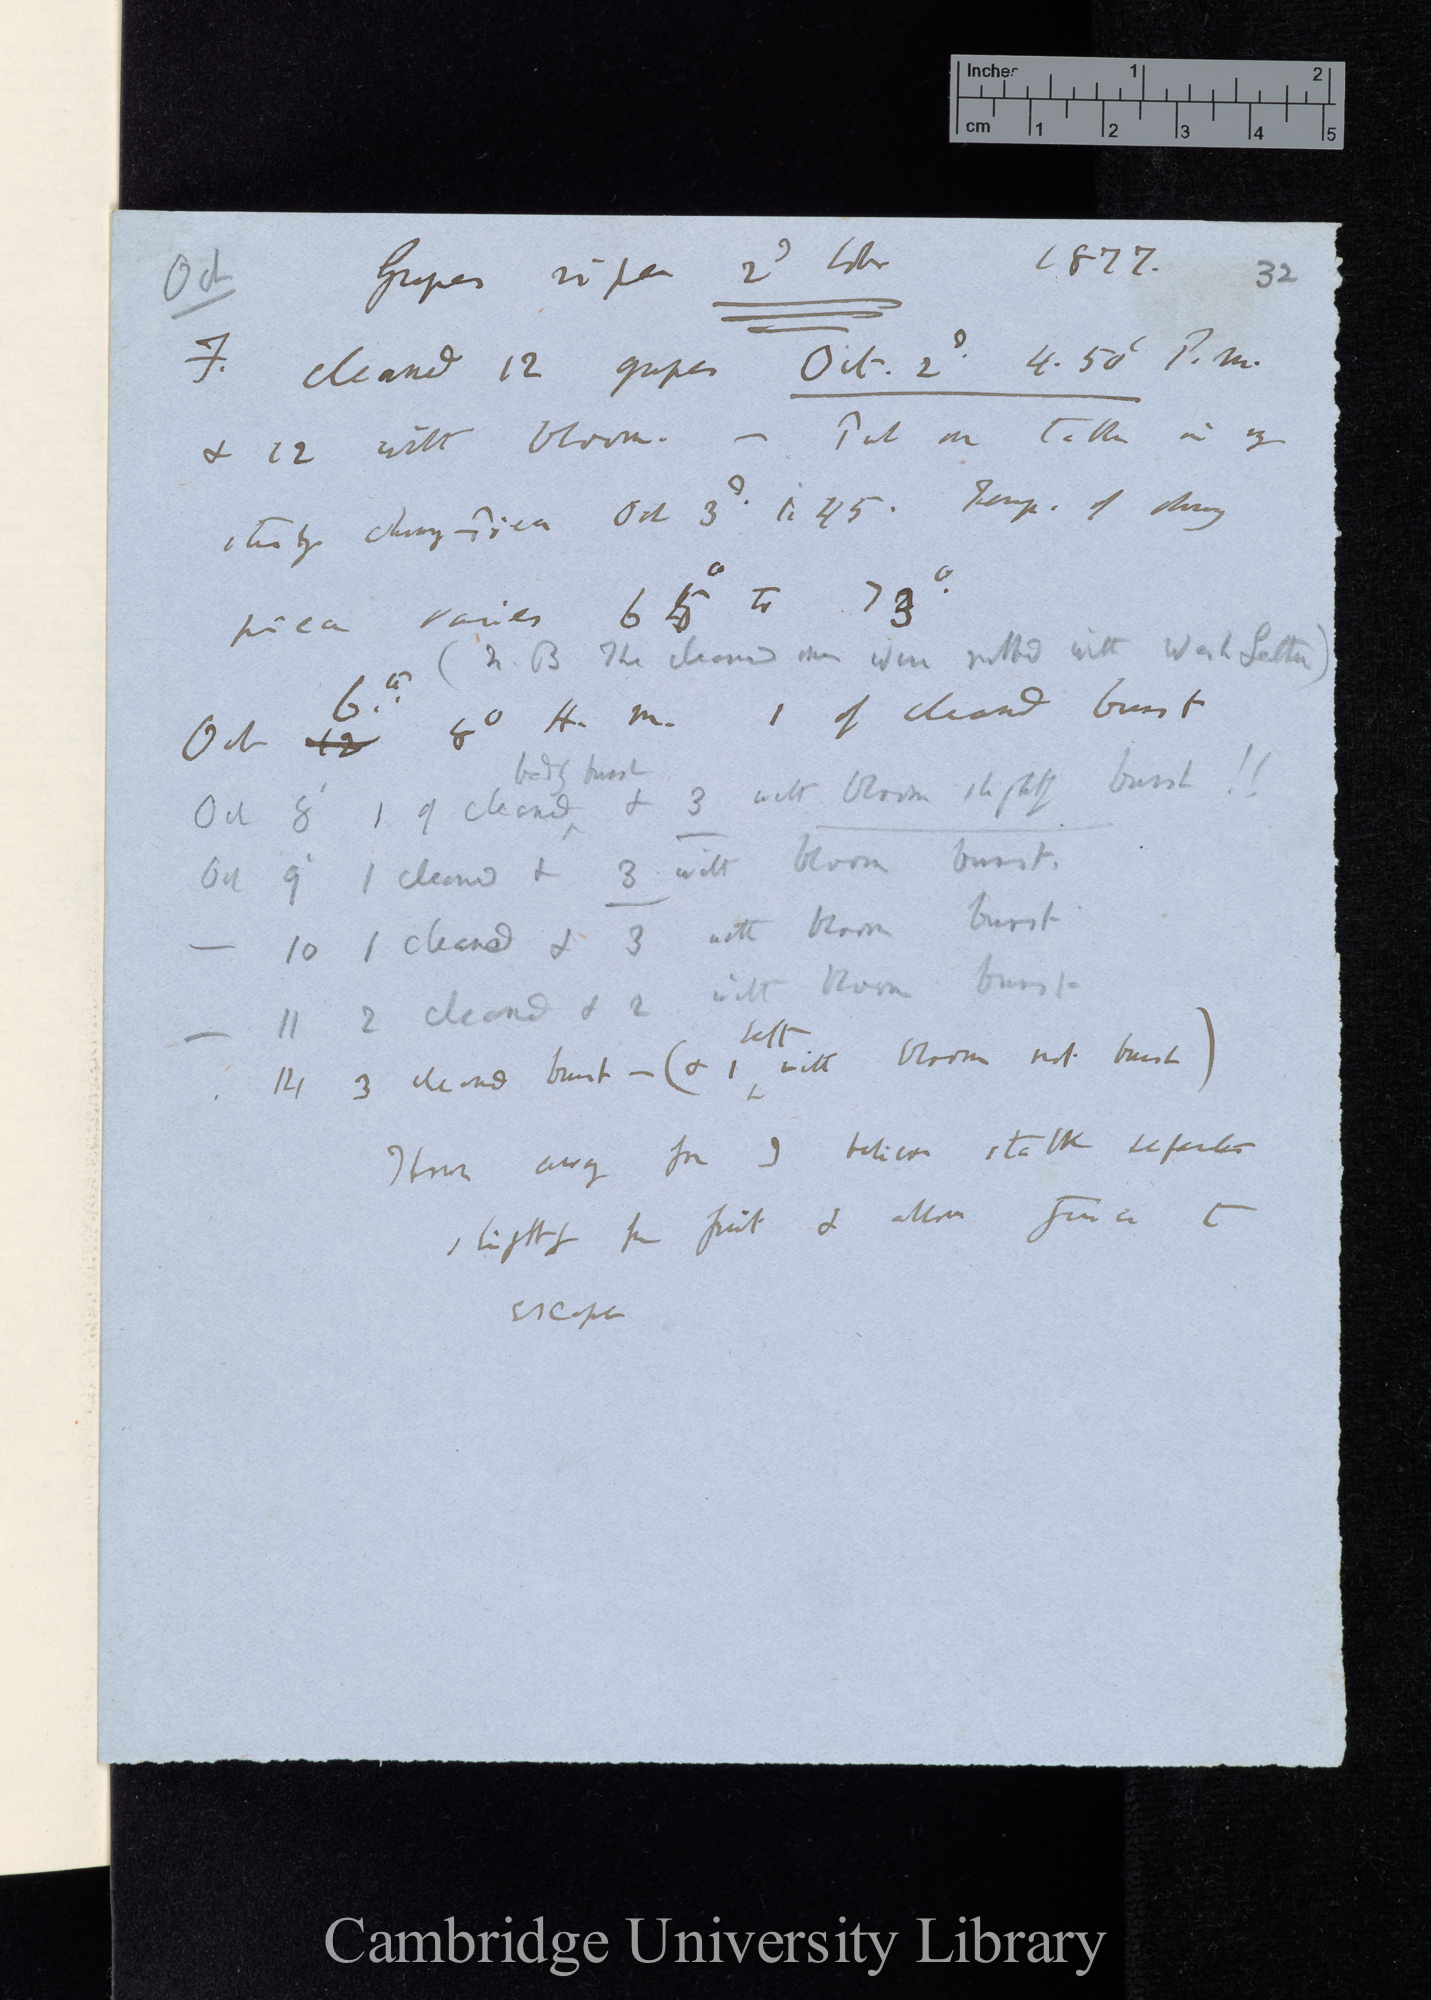 Inches 1 2
cm 1 2 3 4 5
Oct Grapes ripe 2d 1877. 32
F. cleaned 12 grapes Oct. 2d. 4.50' P.m.
& 12 with bloom. — Put on table in my
study chimney-piece Oct 3d. 45. Temp. of chimney
piece varies 65° to 73°.
(N.B The cleaned ones were rubbed with Wash Leather)
Oct 12 6. 8° A.m. 1 of cleaned burst
badly burst
Oct 8' 1 of cleaned & 3 with bloom slightly burst !!
Oct 9' 1 cleaned & 3 with bloom burst.
— 10 1 cleaned & 3 with bloom burst
— 11 2 cleaned & 2 with bloom burst
14 3 cleaned burst — (& 1 soft with bloom not burst)
Thrown away for I believe stalk separates
slightly from fruit & allows juice to
escape
Cambridge University Library